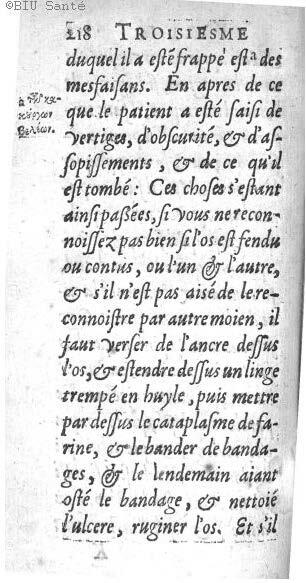 ©BIU Santé
218 TROISIESME
duquel il a esté frappé estᵃ des
mesfaisans. En apres de ce
que le patient a esté saisi de
vertiges, d'obscurité, & d'as-
sopissements, & de ce qu'il
est tombé: Ces choses s'estant
ainsi passées, si vous ne recon-
noissez pas bien si l'os est fendu
ou contus, ou l'un & l'autre,
& s'il n'est pas aisé de le re-
connoistre par autre moien, il
faut verser de l'ancre dessus
l'os, & estendre dessus un linge
trempé en huyle, puis mettre
par dessus le cataplasme de fa-
rine, & le bander de banda-
ges, & le lendemain aiant
osté le bandage, & nettoié
l'ulcere, ruginer l'os. Et s'il